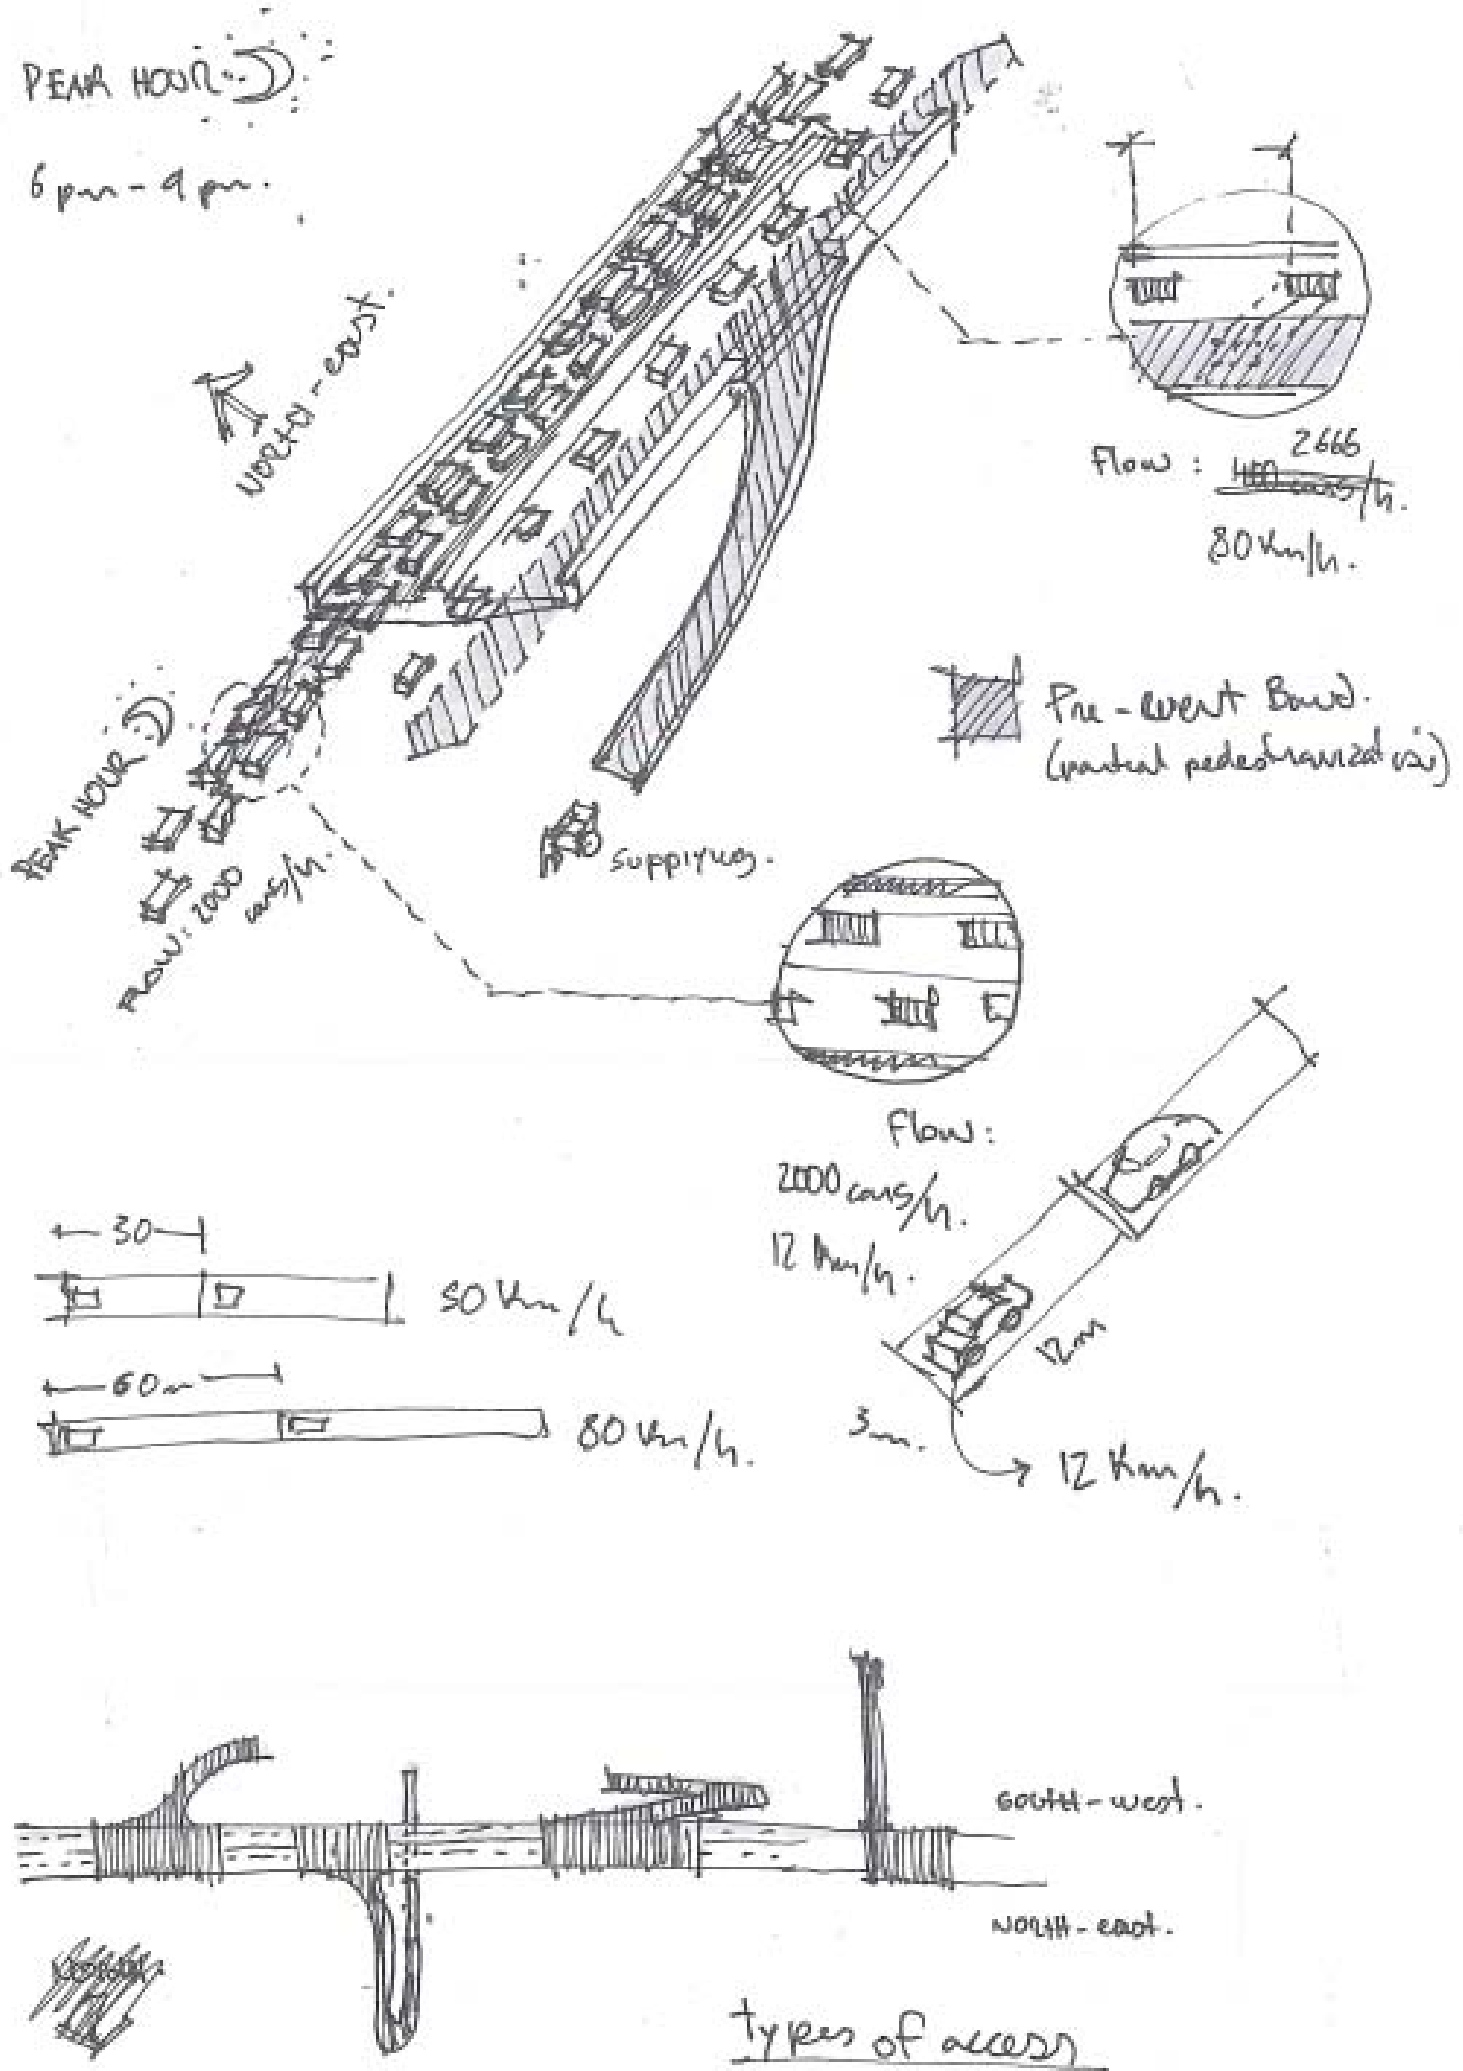 PEAK HOUR
6 pm - 9 pm.
NORTH - east.
Flow : 2666
/h.
80 Km/h.
Pre - event Band.
(partial pedestrianization)
PEAK HOUR
FLOW: 2000
cars/h.
supplying.
Flow :
2000 cars/h.
12 Km/h.
30
50 Km/h
60m
80 Km/h.
12m
3m.
12 Km/h.
SOUTH - west.
NORTH - east.
types of access